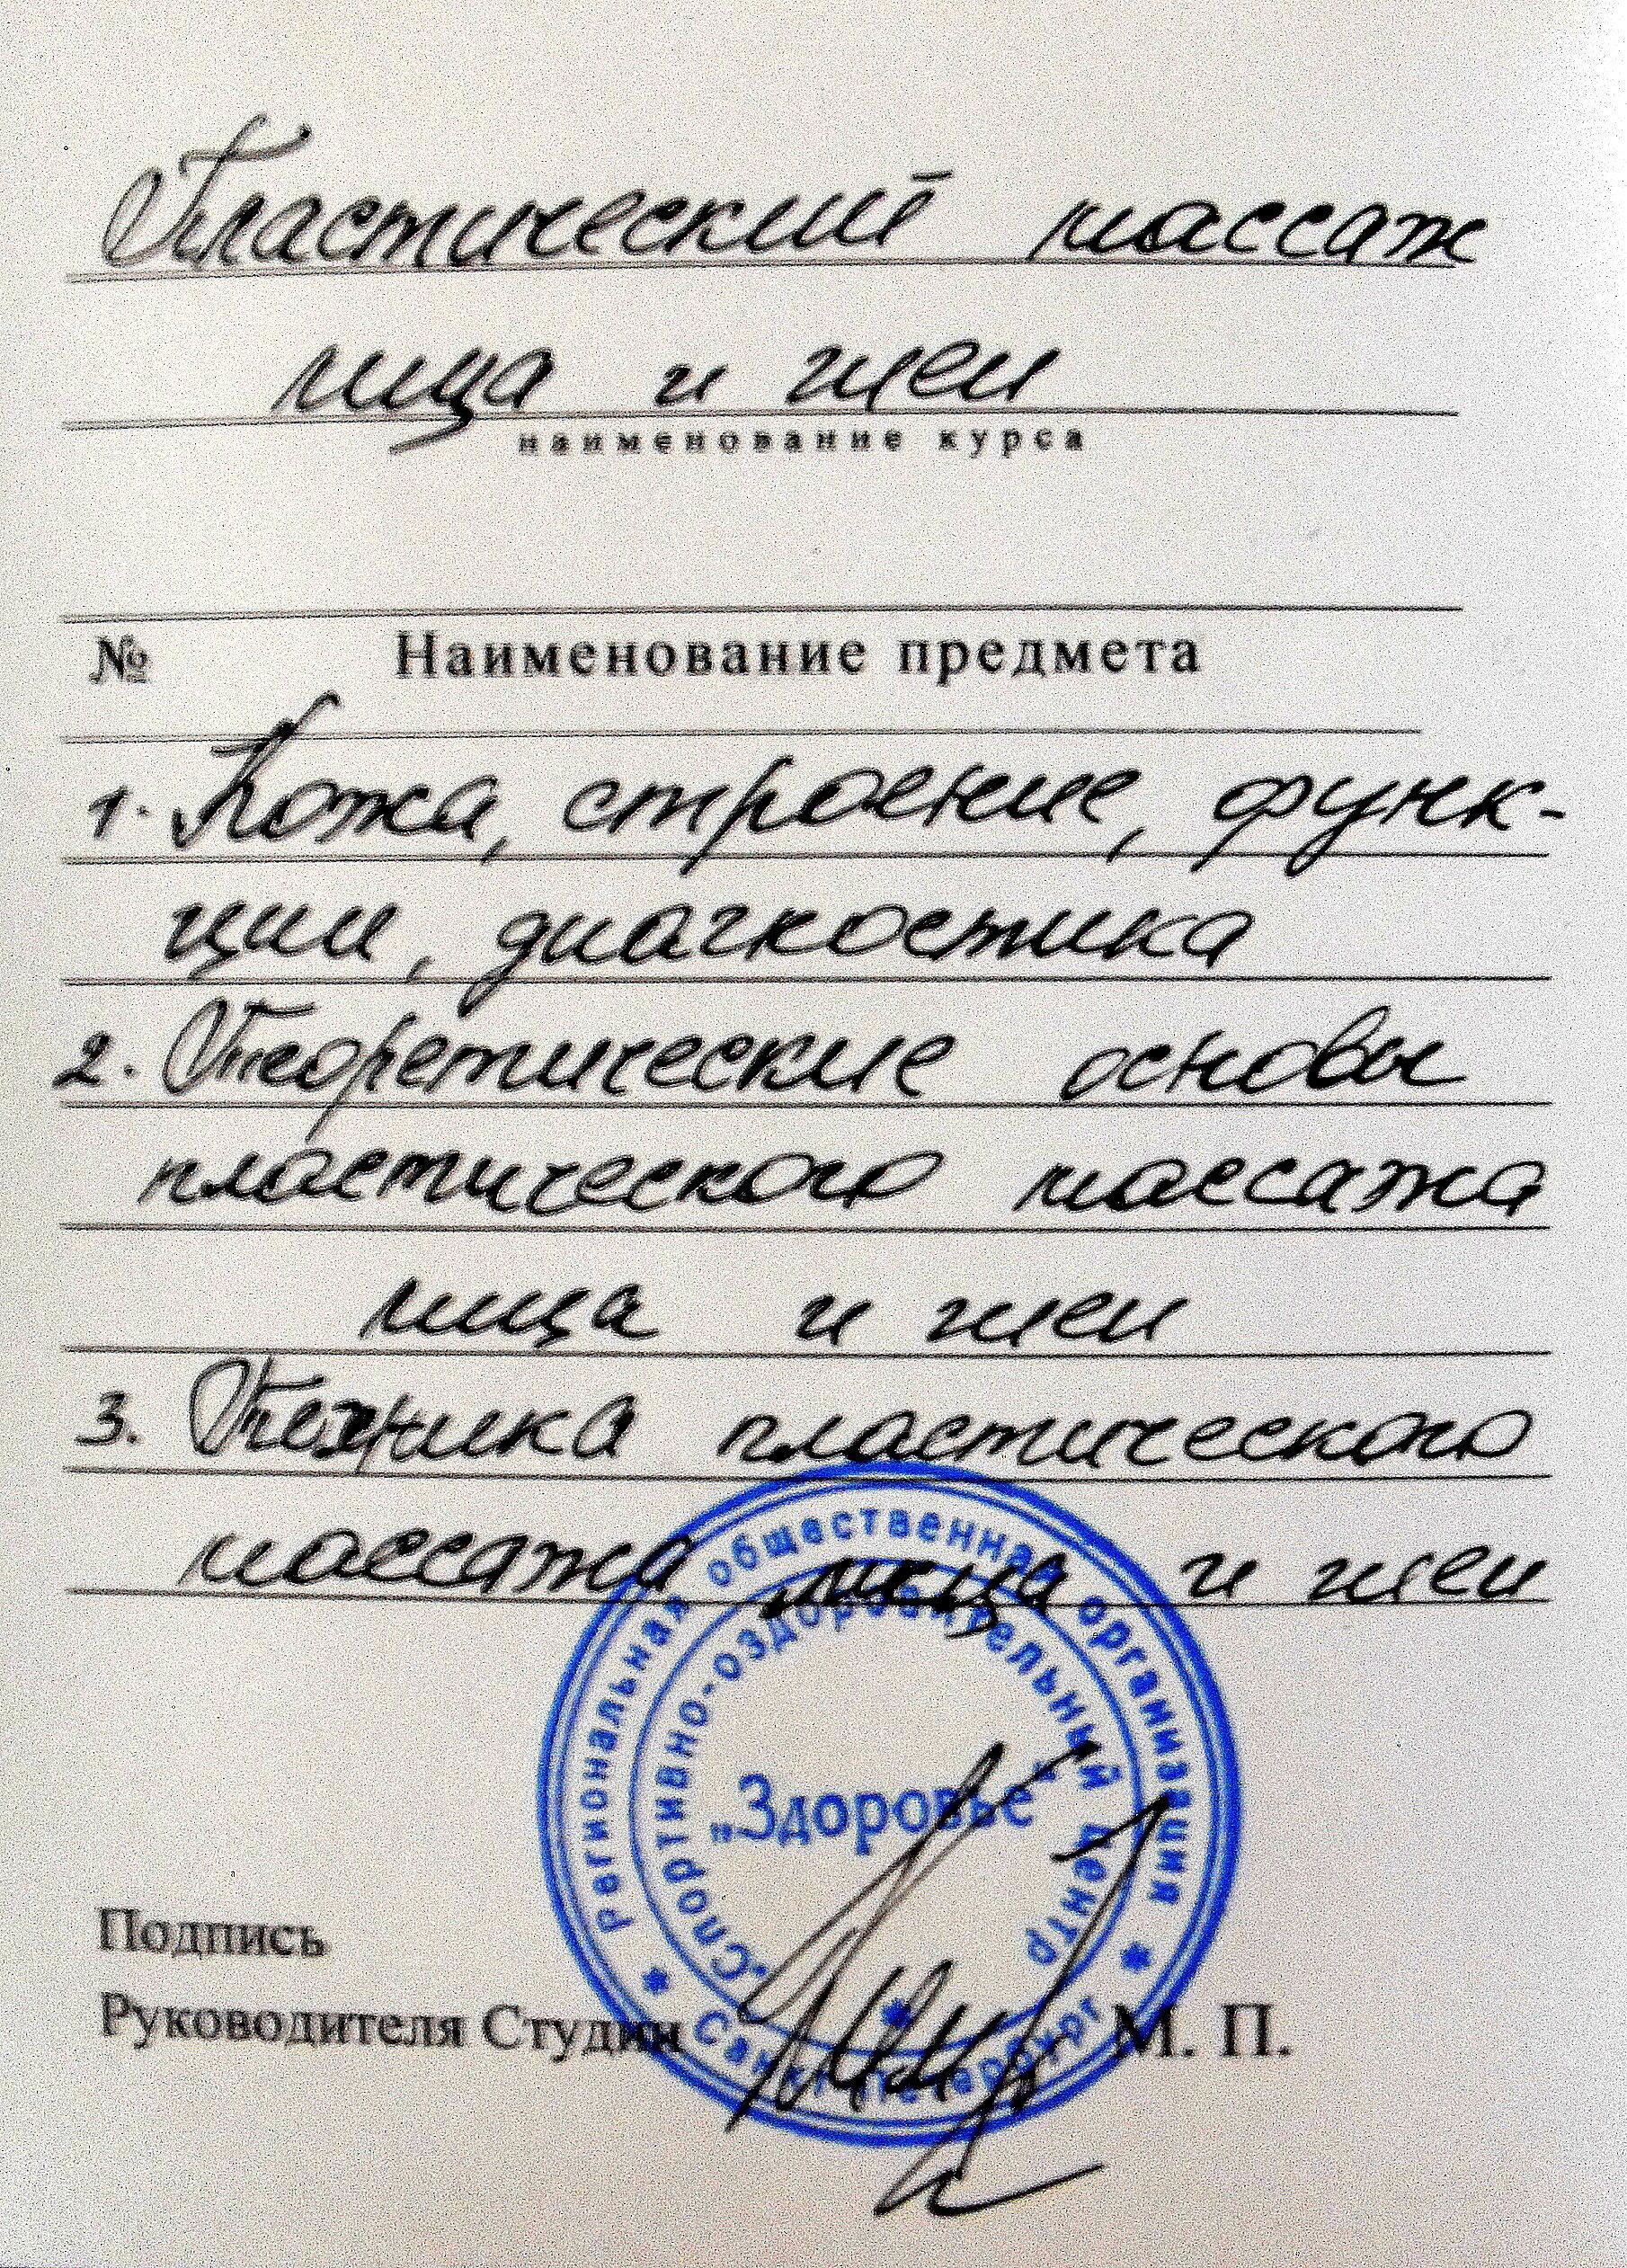 Пластический массаж
лица и шеи
наименование курса
№ Наименование предмета
1. Кожа, строение, функ-
ции, диагностика
2. Теоретические основы
пластического массажа
лица и шеи
3. Техника пластического
массажа лица и шеи
Региональная общественная организация
"Спортивно-оздоровительный центр
"Здоровье"
Санкт-Петербург
Подпись
Руководителя Студии М. П.